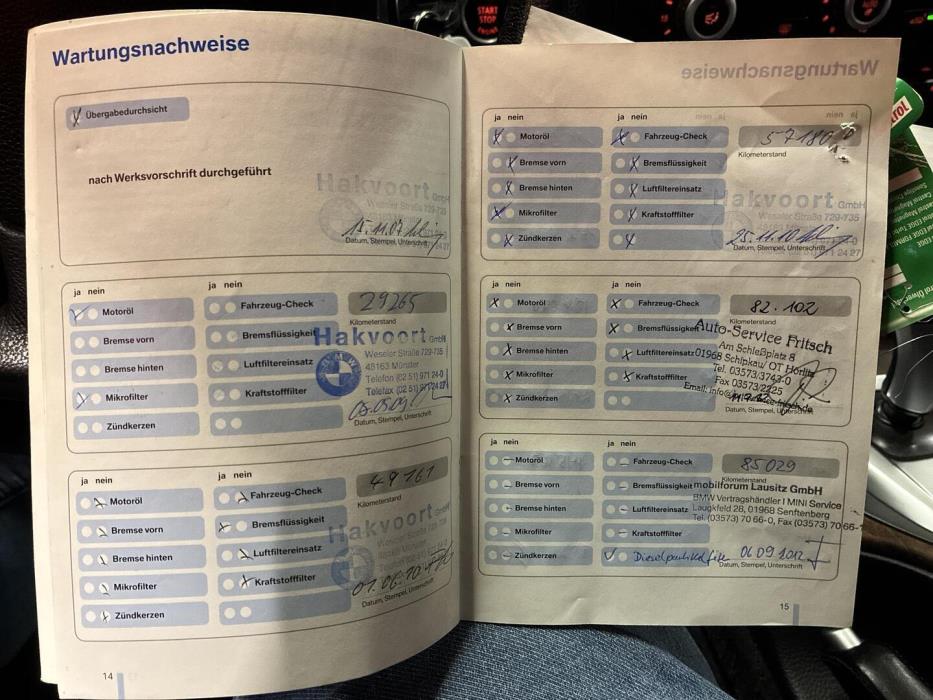 START
STOP
ENGINE
Wartungsnachweise
Übergabedurchsicht
nach Werksvorschrift durchgeführt
Hakvoort GmbH
Weseler Straße 729-735
15.11.07
Datum, Stempel, Unterschrift
ja nein
Motoröl
Bremse vorn
Bremse hinten
Mikrofilter
Zündkerzen
ja nein
Fahrzeug-Check
Bremsflüssigkeit
Luftfiltereinsatz
Kraftstofffilter
29265
Kilometerstand
Hakvoort GmbH
Weseler Straße 729-735
48163 Münster
Telefon (02 51) 971 24-0
Telefax (02 51) 971 24 27
BMW
Datum, Stempel, Unterschrift
ja nein
Motoröl
Bremse vorn
Bremse hinten
Mikrofilter
Zündkerzen
ja nein
Fahrzeug-Check
Bremsflüssigkeit
Luftfiltereinsatz
Kraftstofffilter
49161
Kilometerstand
Hakvoort
01.06.10
Datum, Stempel, Unterschrift
14
Wartungsnachweise
ja nein
Motoröl
Bremse vorn
Bremse hinten
Mikrofilter
Zündkerzen
ja nein
Fahrzeug-Check
Bremsflüssigkeit
Luftfiltereinsatz
Kraftstofffilter
57180
Kilometerstand
Hakvoort GmbH
Weseler Straße 729-735
25.11.10
Datum, Stempel, Unterschrift
ja nein
Motoröl
Bremse vorn
Bremse hinten
Mikrofilter
Zündkerzen
ja nein
Fahrzeug-Check
Bremsflüssigkeit
Luftfiltereinsatz
Kraftstofffilter
82.102
Kilometerstand
Auto-Service Fritsch
Am Schleßplatz 8
01968 Schipkau/ OT Hörlitz
Tel. 03573/3743-0
Fax 03573/2225
Datum, Stempel, Unterschrift
ja nein
Motoröl
Bremse vorn
Bremse hinten
Mikrofilter
Zündkerzen
ja nein
Fahrzeug-Check
Bremsflüssigkeit
Luftfiltereinsatz
Kraftstofffilter
85029
Kilometerstand
mobilforum Lausitz GmbH
BMW Vertragshändler I MINI Service
Laugkfeld 28, 01968 Senftenberg
Tel. (03573) 70 66-0, Fax (03573) 70 66-
06 09 1012
Datum, Stempel, Unterschrift
15